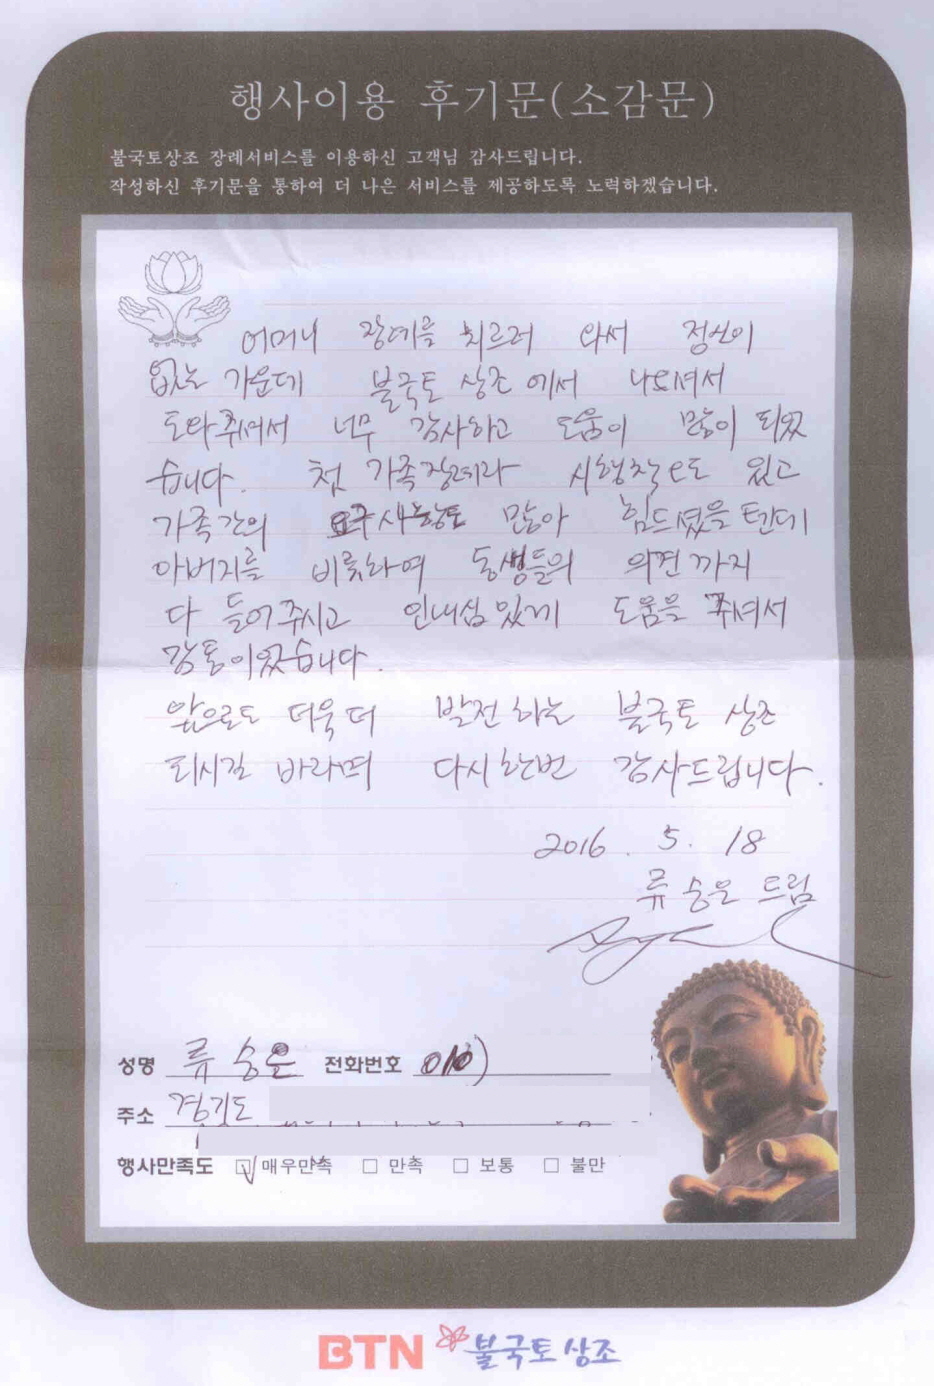 행사이용 후기문(소감문)
불국토상조 장례서비스를 이용하신 고객님 감사드립니다.
작성하신 후기문을 통하여 더 나은 서비스를 제공하도록 노력하겠습니다.
어머니 장례를 치르러 와서 정신이
없는 가운데 불국토 상조에서 나오셔서
도와주셔서 너무 감사하고 도움이 많이 되었
습니다. 첫 가족장례라 시행착오도 있고
가족간의 요구사항도 많아 힘드셨을 텐데
아버지를 비롯하여 동생들의 의견까지
다 들어주시고 인내심있게 도움을 주셔서
감동이었습니다.
앞으로도 더욱 더 발전하는 불국토 상조
되시길 바라며 다시한번 감사드립니다.
2016. 5. 18
류승은 드림
성명 류승은 전화번호 010)
주소 경기도
행사만족도 ☑ 매우만족 □ 만족 □ 보통 □ 불만
BTN 불국토상조